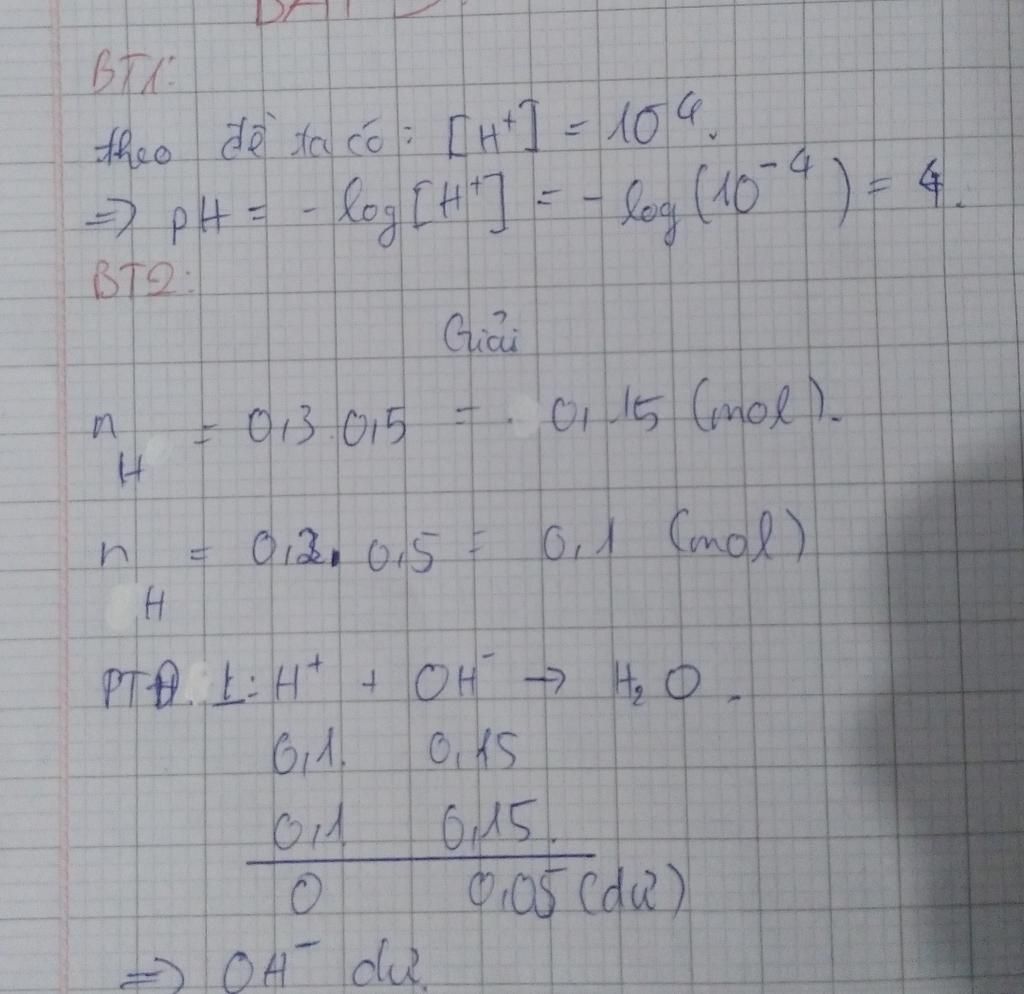 BT1:
theo đề ta có: [H⁺] = 10⁴.
=> pH = - log[H⁺] = - log(10⁻⁴) = 4.
BT2:
Giải
n H = 0,3.0,5 = 0,15 (mol).
n H = 0,2.0,5 = 0,1 (mol)
PTĐ L: H⁺ + OH⁻ → H₂O.
0,1. 0,15
0,1 0,15.
0 0,05 (dư)
=> OH⁻ dư.